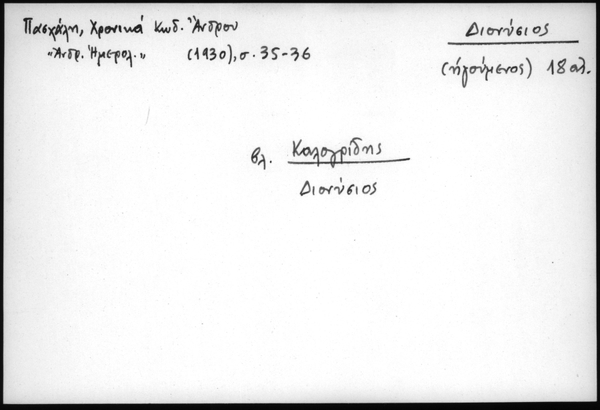 Πασχάλη, Χρονικά Κωδ. Ἄνδρου
"Ἀνδρ. Ἡμερολ." (1930), σ. 35-36
Διονύσιος
(ἡγούμενος) 18 αἰ.
βλ. Καλογρίδης
Διονύσιος